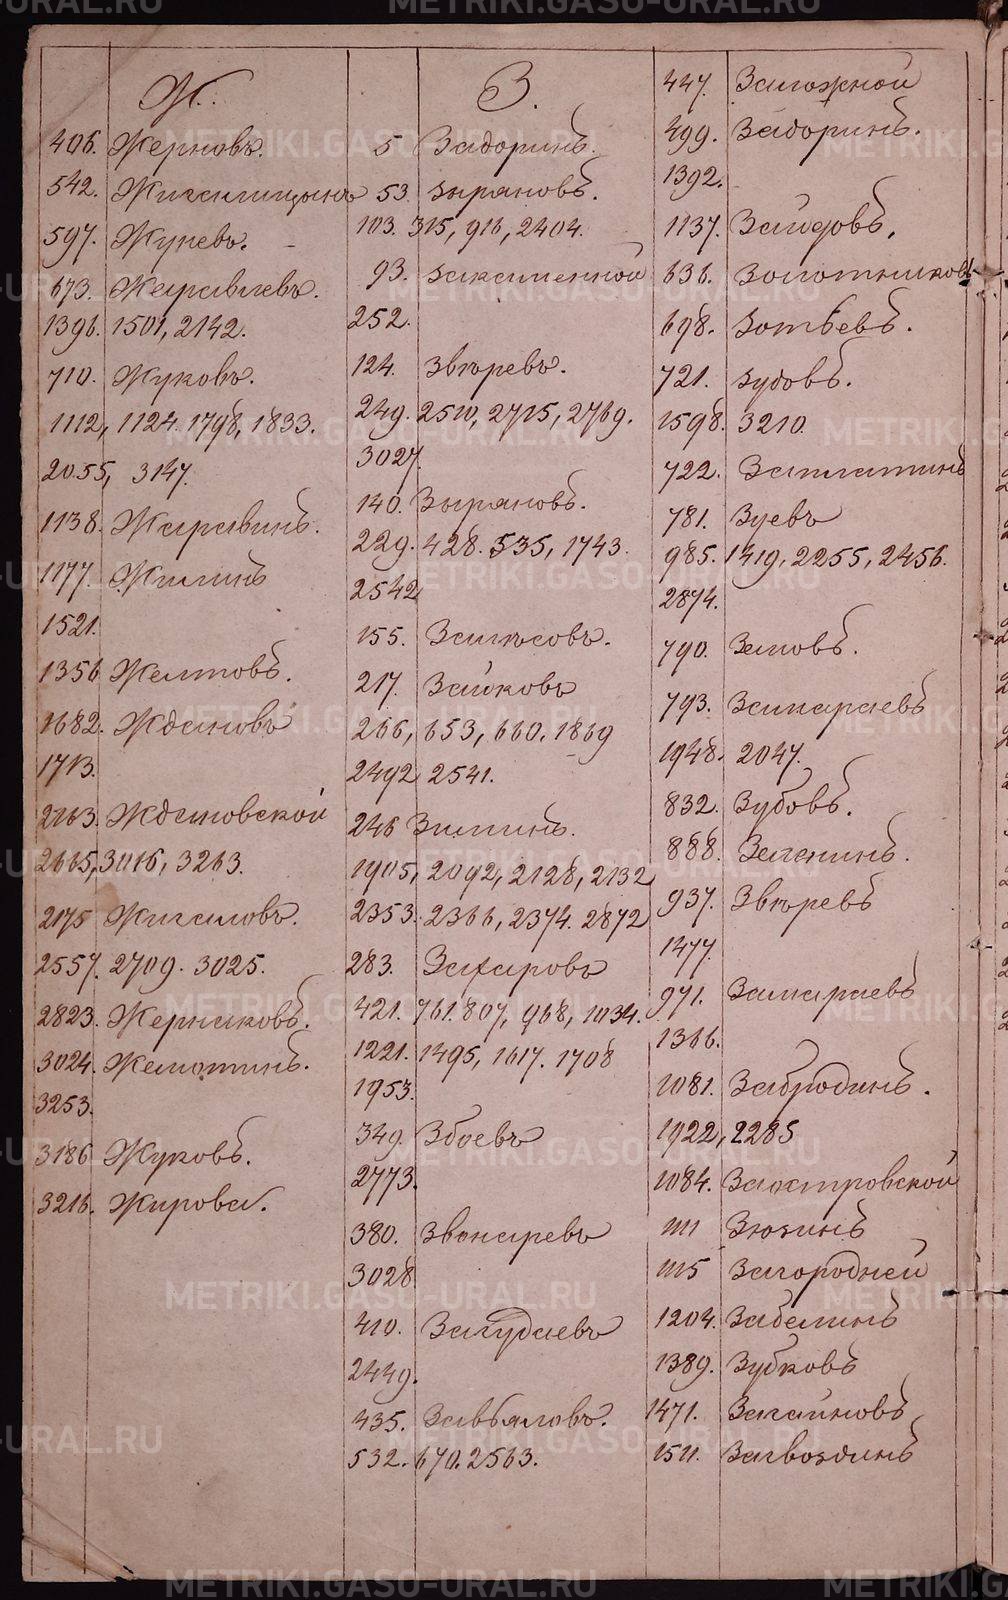 Ж.
406. Жерновъ.
542. Жигалицынъ
597. Жулевъ.
673. Журавлевъ.
1396. 1501, 2142.
710. Жуковъ.
1112, 1124. 1798, 1833.
2055, 3147.
1138. Журавинъ.
1177. Жилинъ
1521.
1356 Желтовъ.
1682. Ждановъ
1713.
2263. Ждановской
2665, 3016, 3263.
2175 Жигаловъ.
2557. 2709. 3025.
2823. Жернаковъ.
3024. Жемотинъ.
3253.
3186 Жуковъ.
3216. Жирова.
З.
5 Задоринъ.
53. Зыряновъ.
103. 315, 916, 2404.
93. Закаменной
252.
124. Звѣревъ.
249. 2510, 2715, 2769.
3027.
140. Зыряновъ.
229. 428. 535, 1743.
2542
155. Залѣсовъ.
217. Зайковъ
266, 653, 660. 1869
2492 2541.
246 Зиминъ.
1905, 2092, 2128, 2132
2353. 2366, 2374. 2872
283. Захаровъ
421. 761. 807, 968, 1034.
1221. 1495, 1617. 1708
1953.
349. Збоевъ
2773.
380. Звонаревъ
3028
410. Загудаевъ
2449.
435. Завьяловъ.
532. 670. 2563.
447. Заложной
499. Задоринъ.
1392.
1137. Зайцовъ.
636. Золотниковъ
698. Зотѣевъ.
721. Зубовъ.
1598. 3210
722. Заплатинъ
781. Зуевъ
985. 1419, 2255, 2456.
2874.
790. Земовъ.
793. Замараевъ
1948. 2047.
832. Зубовъ.
888. Зеленинъ.
937. Звѣревъ
1477.
971. Замараевъ
1366.
1081. Забродинъ.
1922, 2285
1084. Заостровской
1111 Зюзинъ
1115 Загородней
1204. Забелинъ
1389. Зубковъ
1471. Загайновъ
1511. Загвоздинъ
METRIKI.GASO-URAL.RU